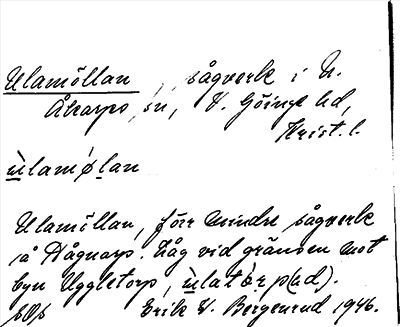 Ulamöllan, sågverk i N.
Åkarps sn, V. Göinge hd,
Krist. l.
ùlamø̀lan
Ulamöllan, förr mindre sågverk
å Dågnarp. Låg vid gränsen mot
byn Uggletorp, ùlatɔ̀rp(ud).
Erik V. Bergenrud 1946.